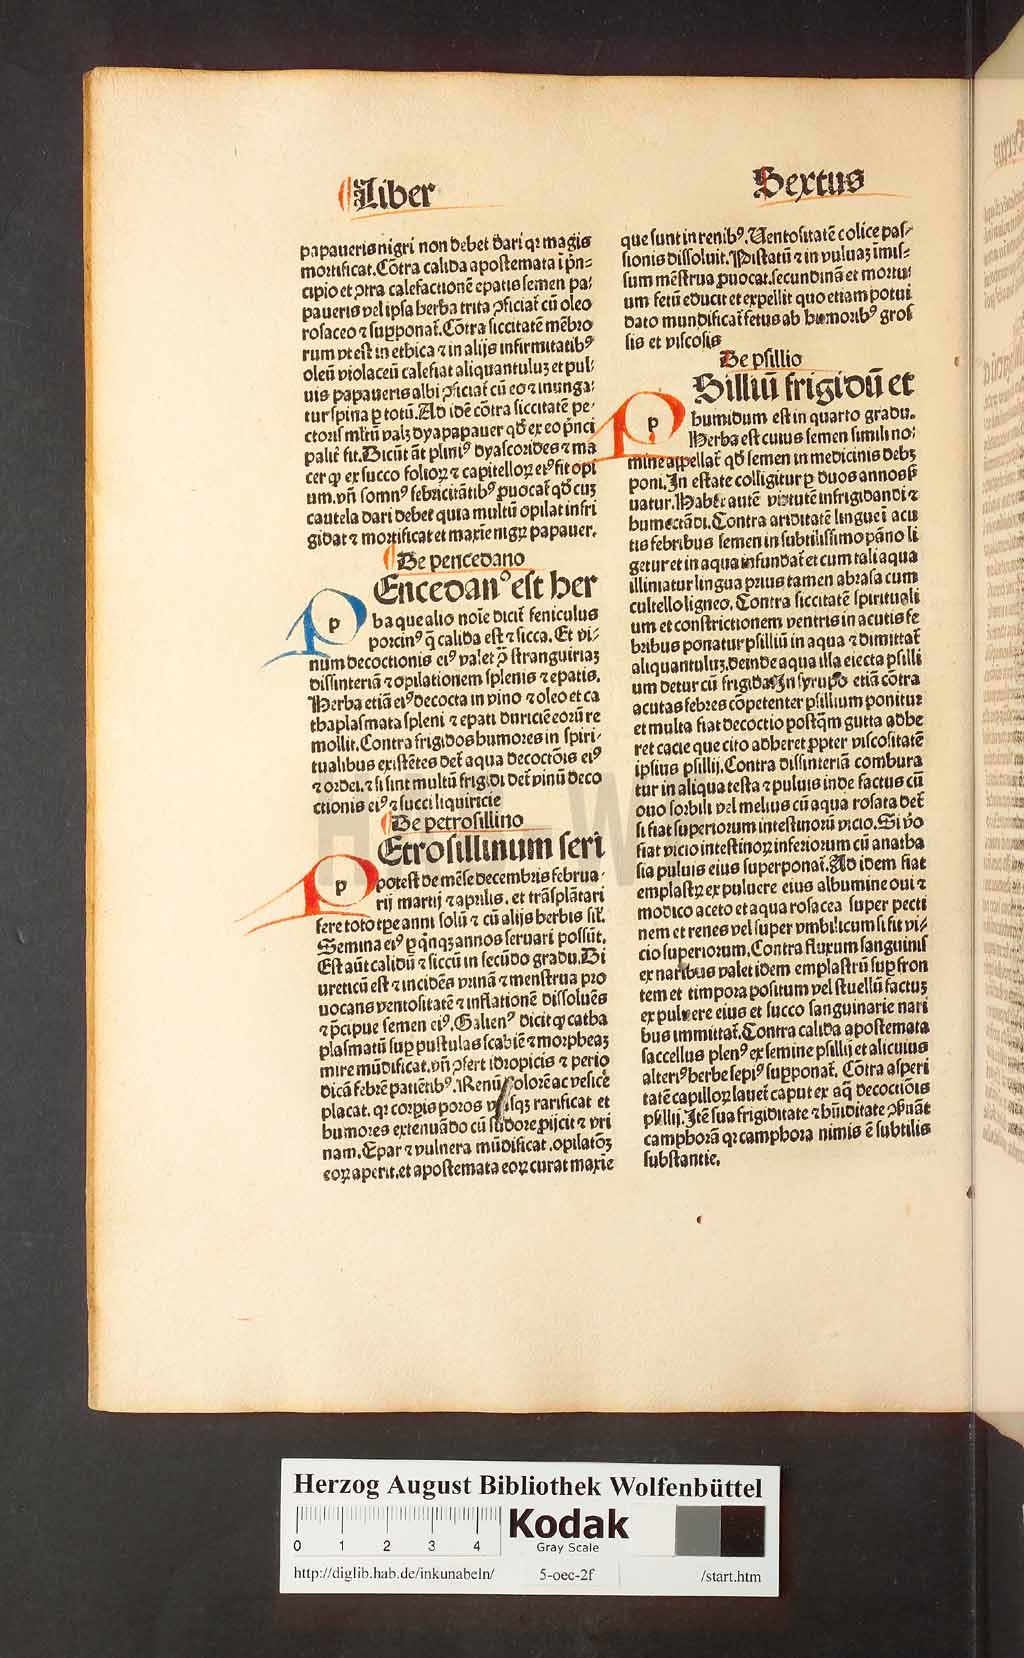 Liber
Sextus
papaueris nigri non debet dari qꝛ magis
mortificat. Cōtra calida apostemata ī pͥn⸗
cipio et ꝯtra calefactionē epatis semen pa⸗
paueris vel ipsa herba trita ꝯficiat᷑ cū oleo
rosaceo ⁊ supponat᷑. Cōtra siccitatē mēbro
rum vt est in ethica ⁊ in alijs infirmitatibꝰ
oleū violaceū calefiat aliquantuluꝫ et pul⸗
uis papaueris albi ꝯficiat᷑ cū eo ⁊ inunga⸗
tur spina ꝑ totū. Ad idē cōtra siccitatē pe⸗
ctoris mltū valꝫ dyapapauer qd̓ ex eo pͥnci
palit᷑ fit. Dicūt āt pliniꝰ dyascorides ⁊ ma
cer ꝙ ex succo folioꝝ ⁊ capitelloꝝ eiꝰ fit opi
um. vn̄ somnꝰ febricitātibꝰ ꝓuocat᷑ qd̓ cuꝫ
cautela dari debet quia multū opilat infri
gidat ⁊ mortificat et maxīe nigꝝ papauer.
De pencedano
p
Encedanꝰ est her
ba que alio noīe dicit᷑ feniculus
porcinꝰ q̄ calida est ⁊ sicca. Et vi⸗
num decoctionis eiꝰ valet ꝯ̄ stranguiriaꝫ
dissinteriā ⁊ opilationem splenis ⁊ epatis.
Herba etiā eiꝰ decocta in vino ⁊ oleo et ca
thaplasmata spleni ⁊ epati duriciē eorū re
mollit. Contra frigidos humores in spiri⸗
tualibus existētes det᷑ aqua decoctōis eiꝰ
⁊ ordei. ⁊ si sint multū frigidi det᷑ vinū deco
ctionis eiꝰ ⁊ succi liquiricie
De petrosillino
p
Etrosillinum seri
potest de mēse decembris februa⸗
rij martij ⁊ aprilis. et trāsplātari
fere toto tp̄e anni solū ⁊ cū alijs herbis sil᷑.
Semina eiꝰ ꝑ qͥnqꝫ annos seruari possūt.
Est aūt calidū ⁊ siccū in secūdo gradu. Di
ureticū est ⁊ incidēs vrinā ⁊ menstrua pro
uocans ventositatē ⁊ inflationē dissoluēs
⁊ p̄cipue semen eiꝰ. Galienꝰ dicit ꝙ catha
plasmatū suꝑ pustulas scabiē ⁊ morpheaꝫ
mire mūdificat. vn̄ ꝯfert idropicis ⁊ perio
dicā febrē patiētibꝰ. Renū dolorē ac vesice
placat. qꝛ corpis poros rarificat et
humores extenuādo cū sudore ꝓijcit ⁊ vri
nam. Epar ⁊ vulnera mūdificat. opilatōꝫ
eoꝝ aperit. et apostemata eoꝝ curat maxīe
que sunt in renibꝰ. Uentositatē colice pas⸗
sionis dissoluit. Pistatū ⁊ in vuluaꝫ īmis⸗
sum mēstrua ꝓuocat. secundinā et mortu⸗
um fetū educit et expellit quo etiam potui
dato mundificat᷑ fetus ab humoribꝰ gros
sis et viscosis
De psillio
p
Silliū frigidū et
humidum est in quarto gradu.
Herba est cuius semen simili no⸗
mine appellat᷑ qd̓ semen in medicinis debꝫ
poni. In estate colligitur ꝑ duos annos ẜ
uatur. Habꝫ autē virtutē infrigidandi ⁊
humectādi. Contra ariditatē lingue ī acu
tis febribus semen in subtilissimo pāno li
getur et in aqua infundat᷑ et cum tali aqua
illiniatur lingua prius tamen abrasa cum
cultello ligneo. Contra siccitatē spirituali
um et constrictionem ventris in acutis fe
bribus ponatur psilliū in aqua ⁊ dimittat᷑
aliquantuluꝫ. deinde aqua illa eiecta psilli
um detur cū frigida. In syrupo etiā cōtra
acutas febres cōpetenter psillium ponitur
et multa fiat decoctio postq̄m gutta adhe
ret cacie que cito adheret ꝓpter viscositatē
ipsius psillij. Contra dissinteriā combura
tur in aliqua testa ⁊ puluis inde factus cū
ouo sorbili vel melius cū aqua rosata det᷑
si fiat superiorum intestinorū vicio. Si vo
fiat vicio intestinoꝝ inferiorum cū anatha
sia puluis eius superponat᷑. Ad idem fiat
emplastꝝ ex puluere eius albumine oui ⁊
modico aceto et aqua rosacea super pecti
nem et renes vel super vmbilicum si fit vi⸗
cio superiorum. Contra fluxum sanguinis
ex naribus valet idem emplastrū suꝑ fron
tem et timpora positum vel stuellū factuꝫ
ex puluere eius et succo sanguinarie nari
bus immittat᷑. Contra calida apostemata
saccellus plenꝰ ex semine psillij et alicuius
alteriꝰ herbe sepiꝰ supponat᷑. Cōtra asperi
tatē capilloꝝ lauet᷑ caput ex aq̄ decoctiōis
psillij. Itē sua frigiditate ⁊ hūiditate ꝯẜuāt
camphorā qꝛ camphora nimis ē subtilis
substantie.
Herzog August Bibliothek Wolfenbüttel
0 1 2 3 4
Kodak
Gray Scale
http://diglib.hab.de/inkunabeln/ 5-oec-2f /start.htm